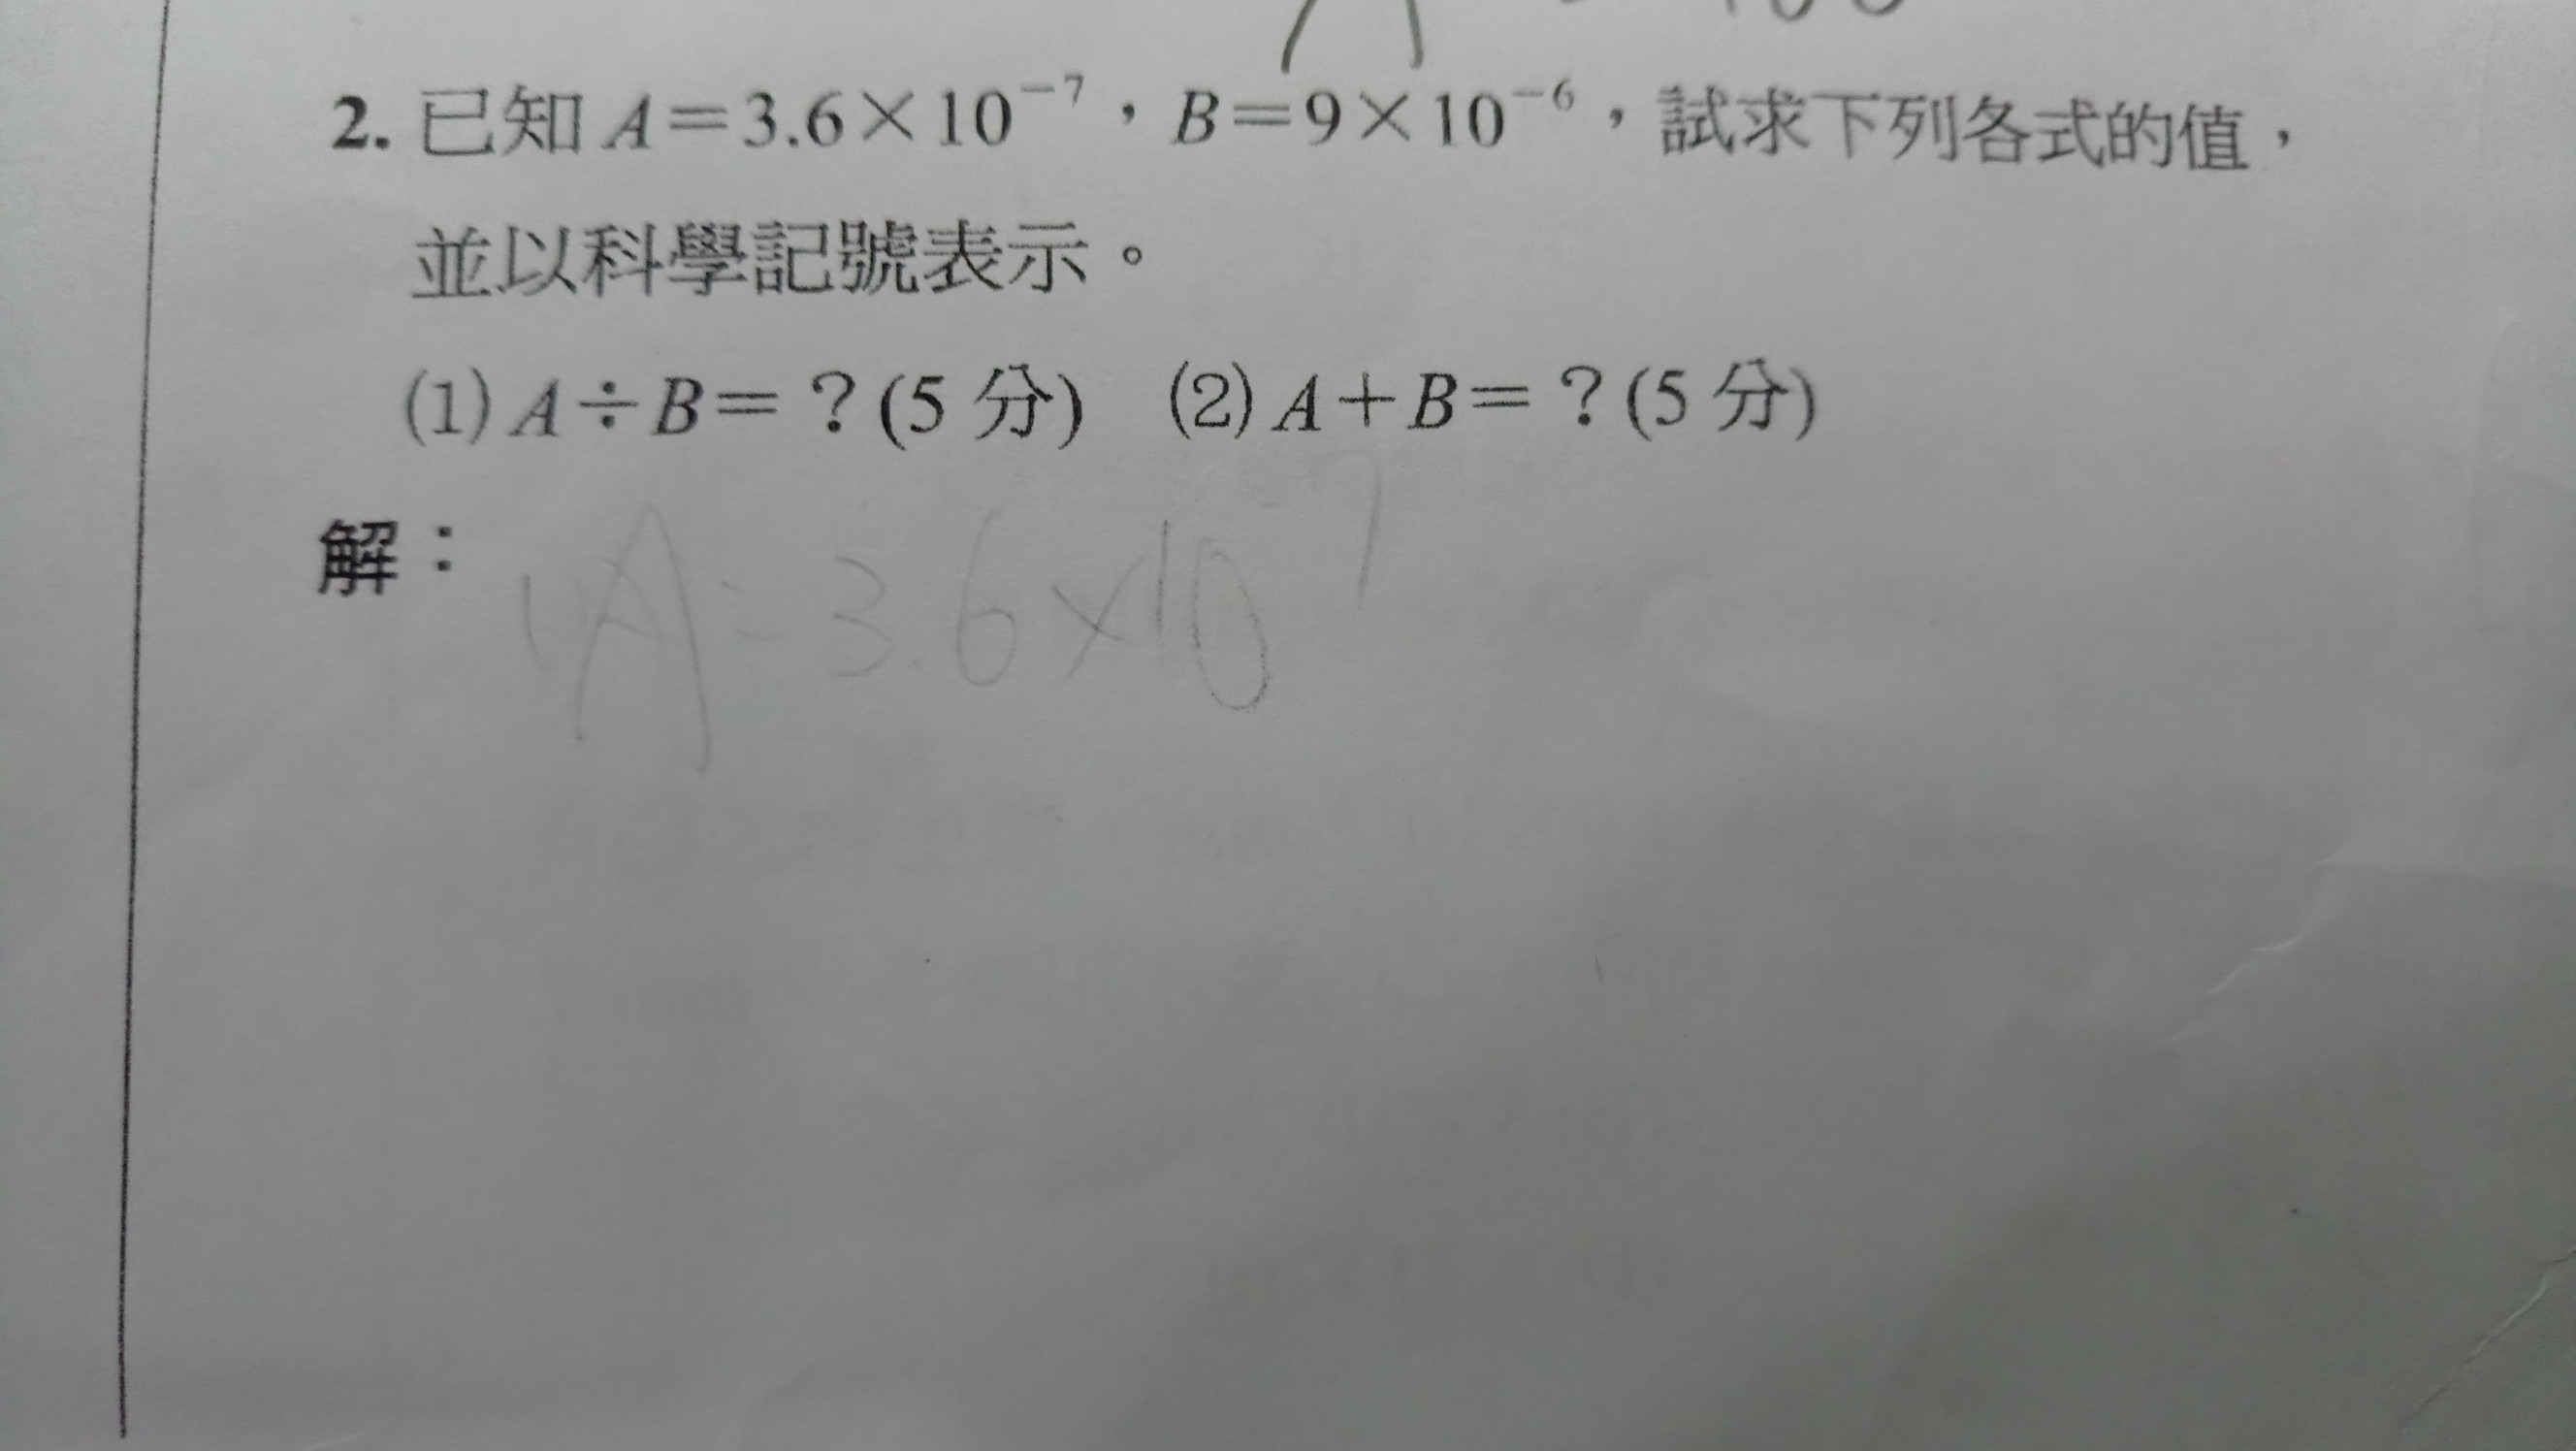 2. 已知 A＝3.6×10⁻⁷，B＝9×10⁻⁶，試求下列各式的值，
並以科學記號表示。
(1) A÷B＝？(5 分) (2) A＋B＝？(5 分)
解：
A=3.6×10⁻⁷